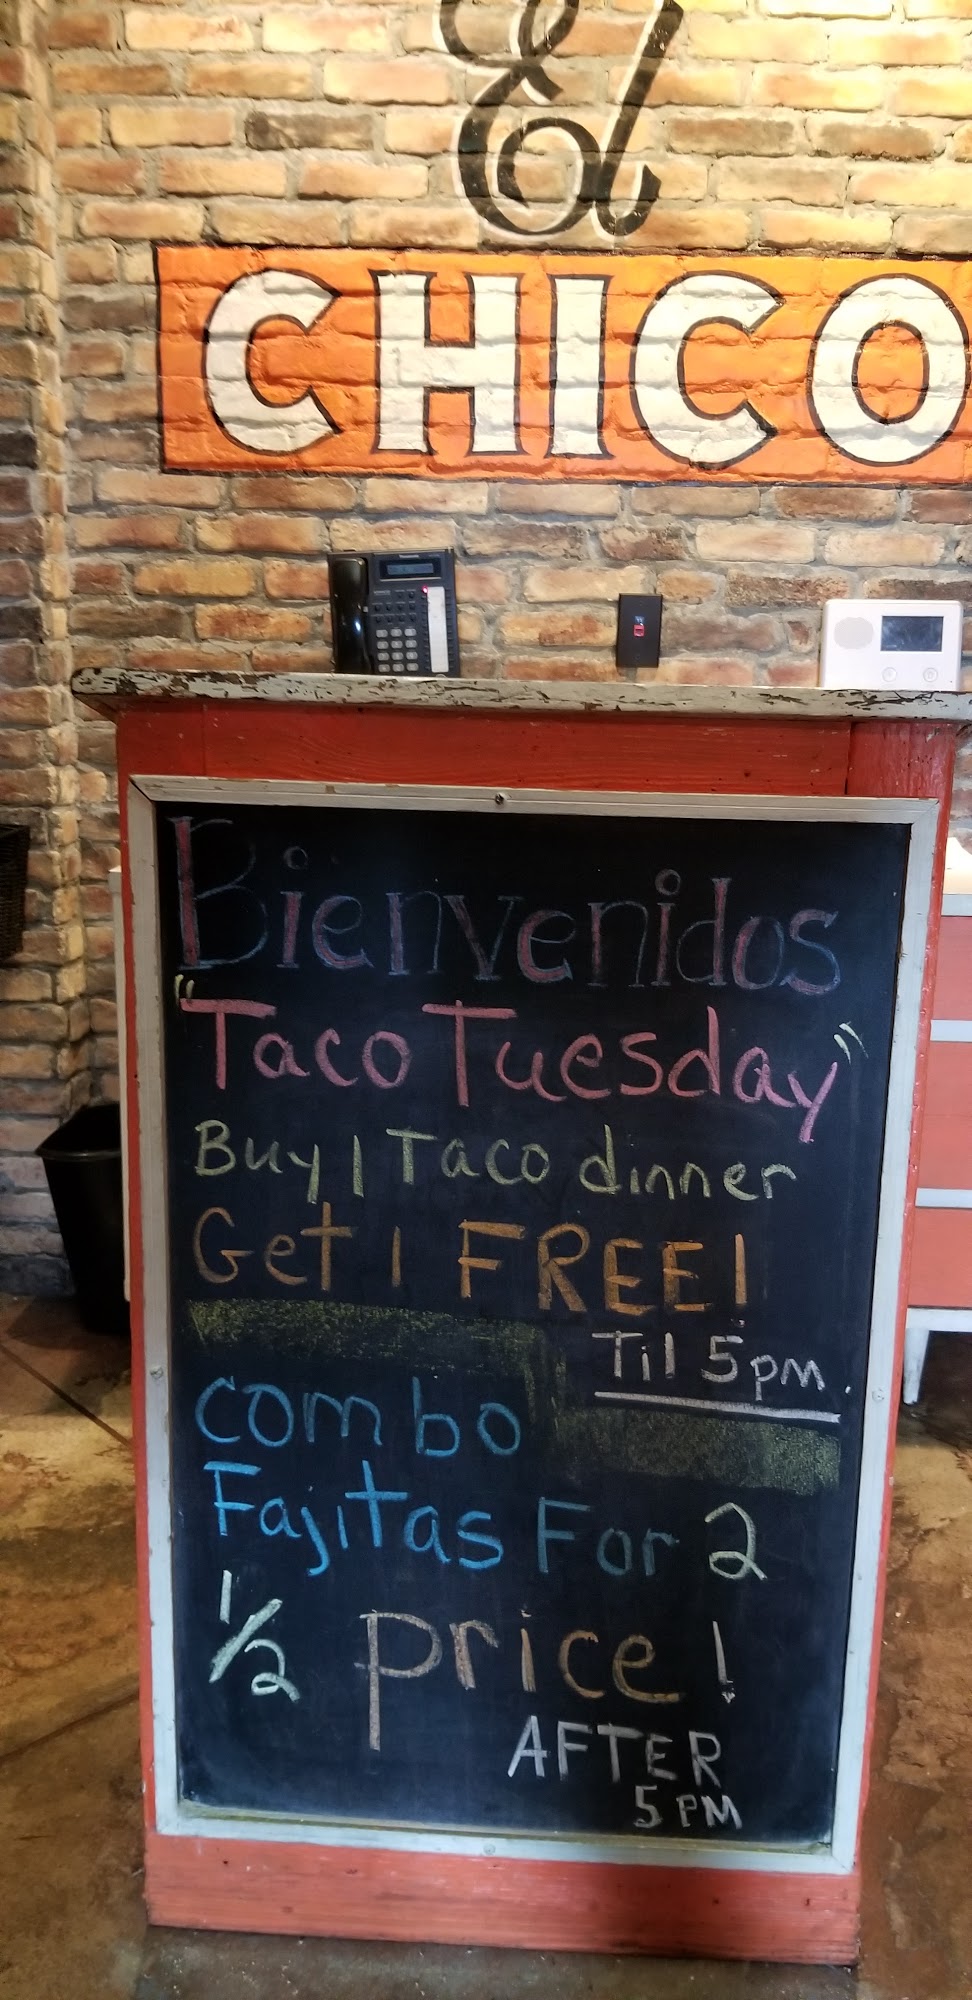 El
CHICO
Bienvenidos
"Taco Tuesday"
Buy 1 Taco dinner
Get 1 FREE!
Til 5pm
combo
Fajitas For 2
1/2 price!
AFTER
5 PM